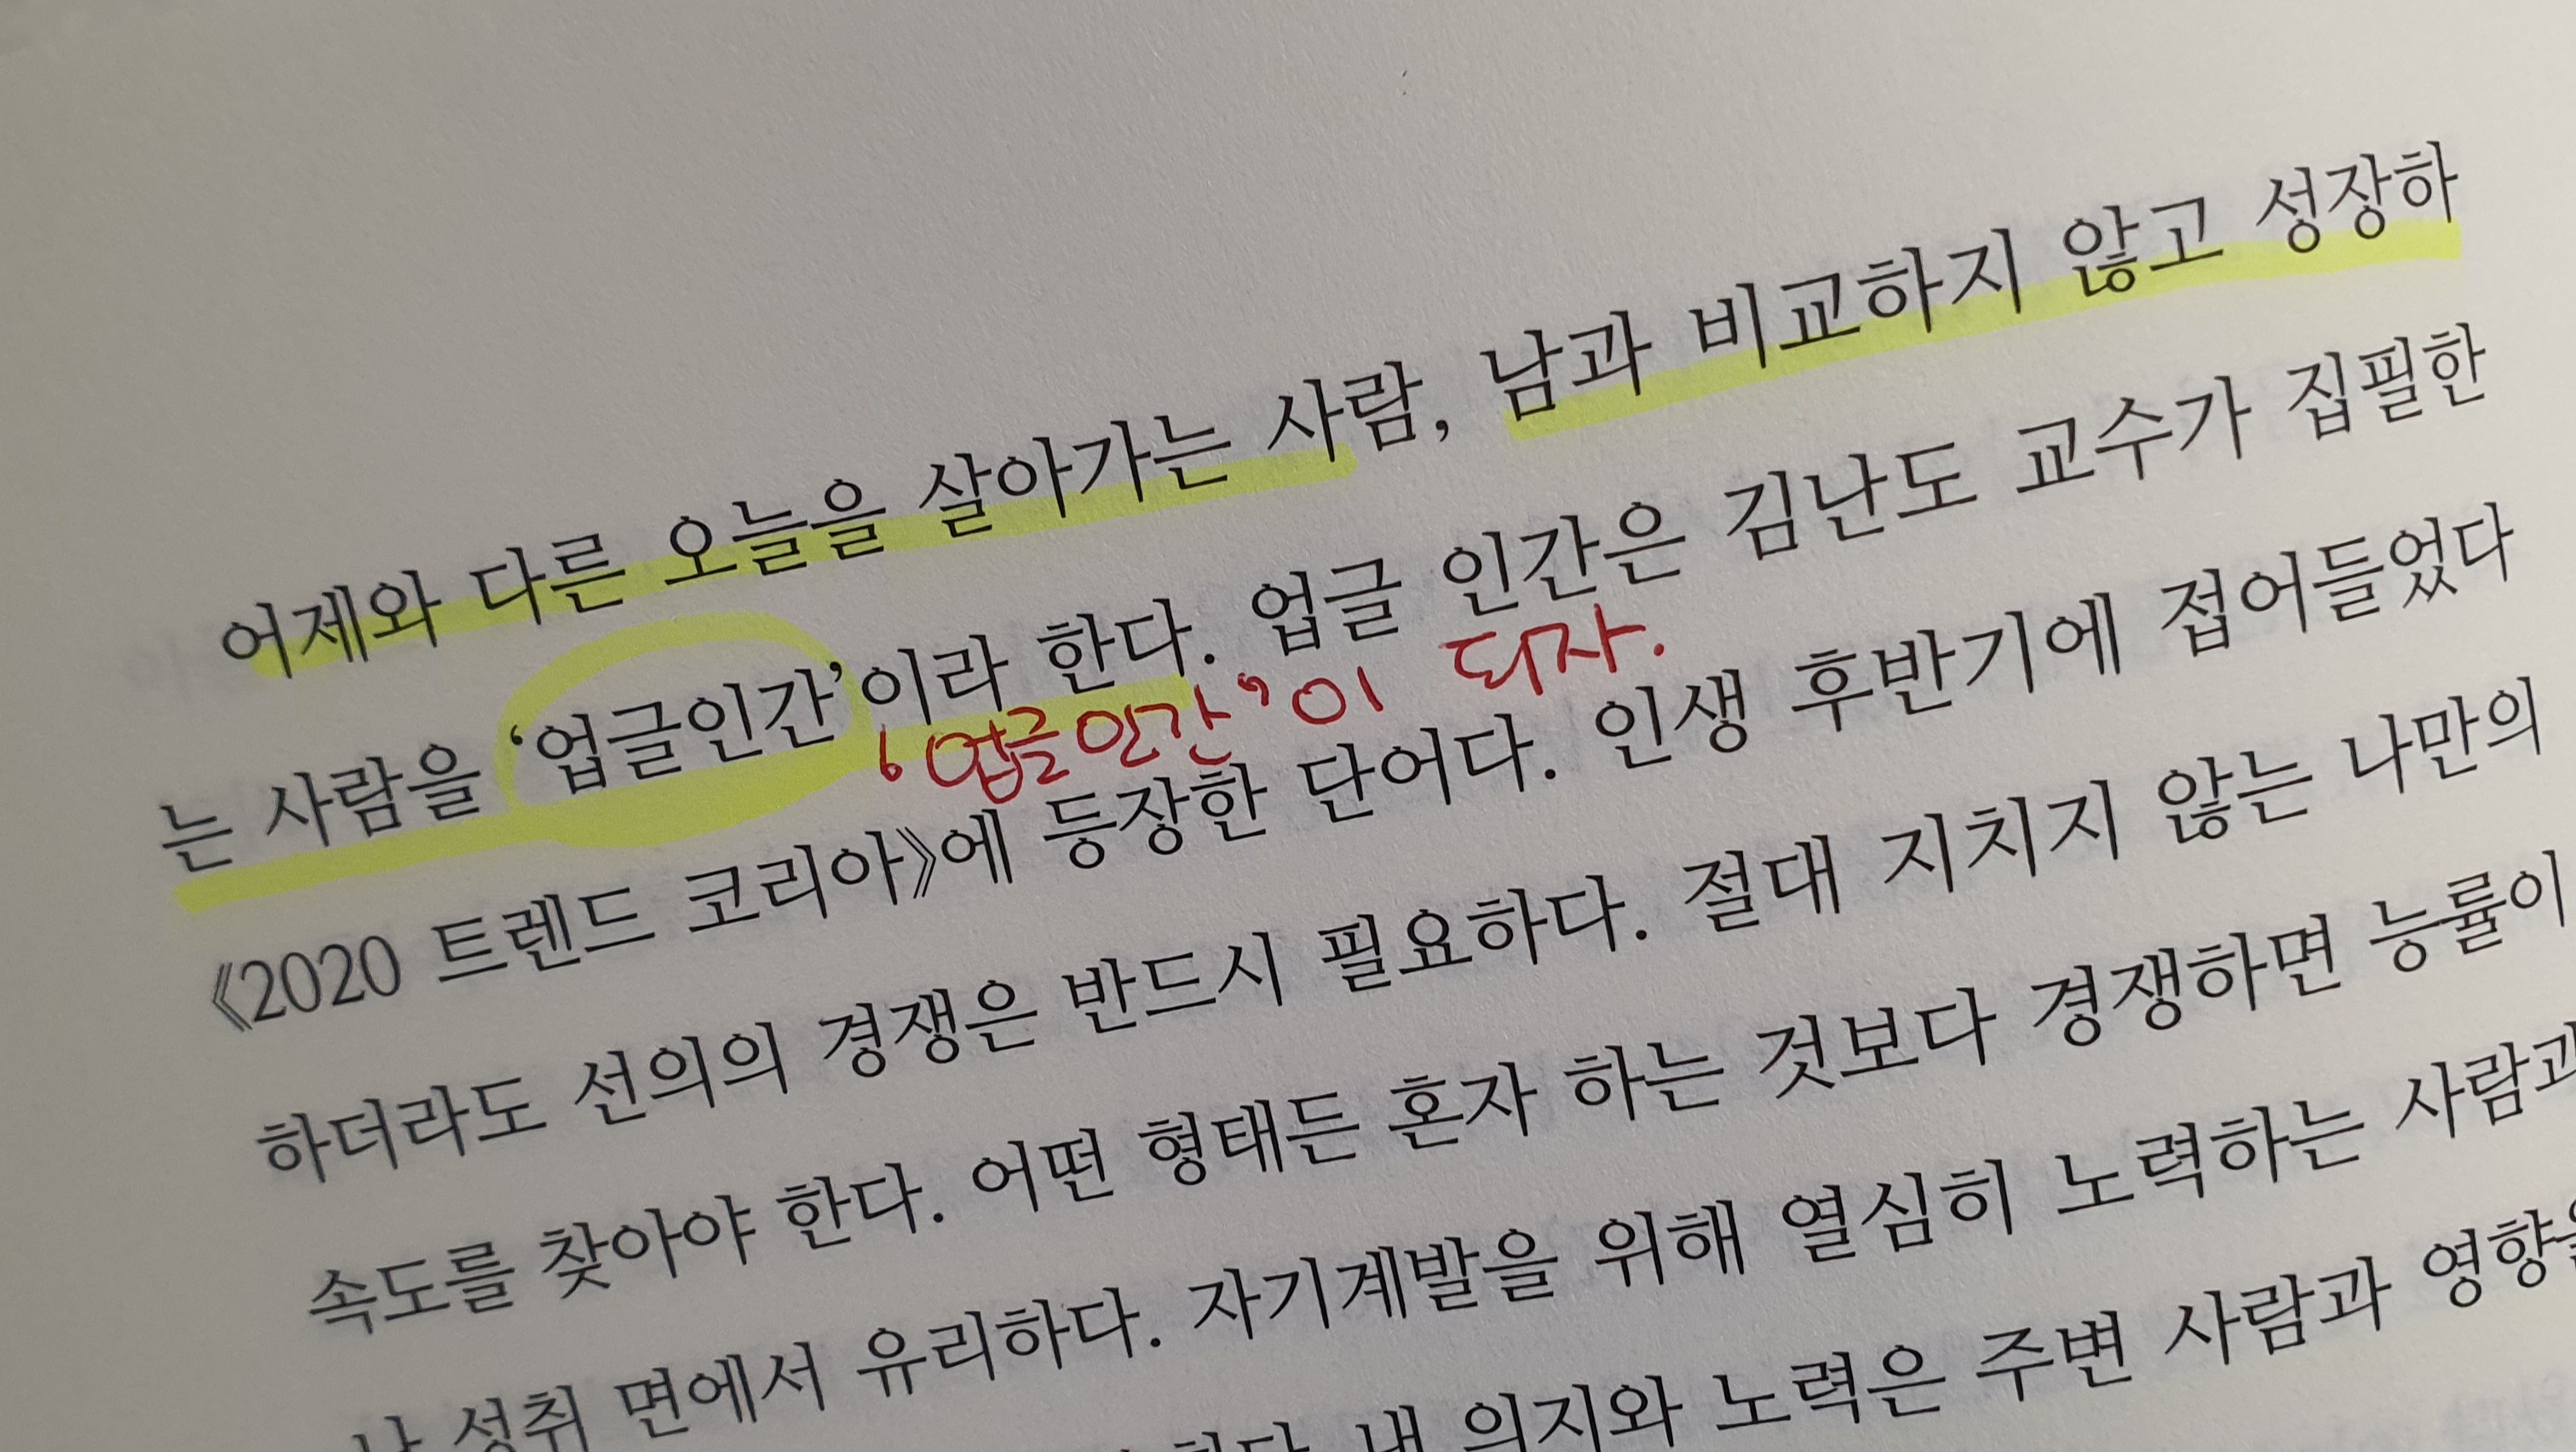 어제와 다른 오늘을 살아가는 사람, 남과 비교하지 않고 성장하
는 사람을 ‘업글인간’이라 한다. 업글 인간은 김난도 교수가 집필한
‘업글인간’이 되자.
《2020 트렌드 코리아》에 등장한 단어다. 인생 후반기에 접어들었다
하더라도 선의의 경쟁은 반드시 필요하다. 절대 지치지 않는 나만의
속도를 찾아야 한다. 어떤 형태든 혼자 하는 것보다 경쟁하면 능률이
성취 면에서 유리하다. 자기계발을 위해 열심히 노력하는 사람과
내 의지와 노력은 주변 사람과 영향을